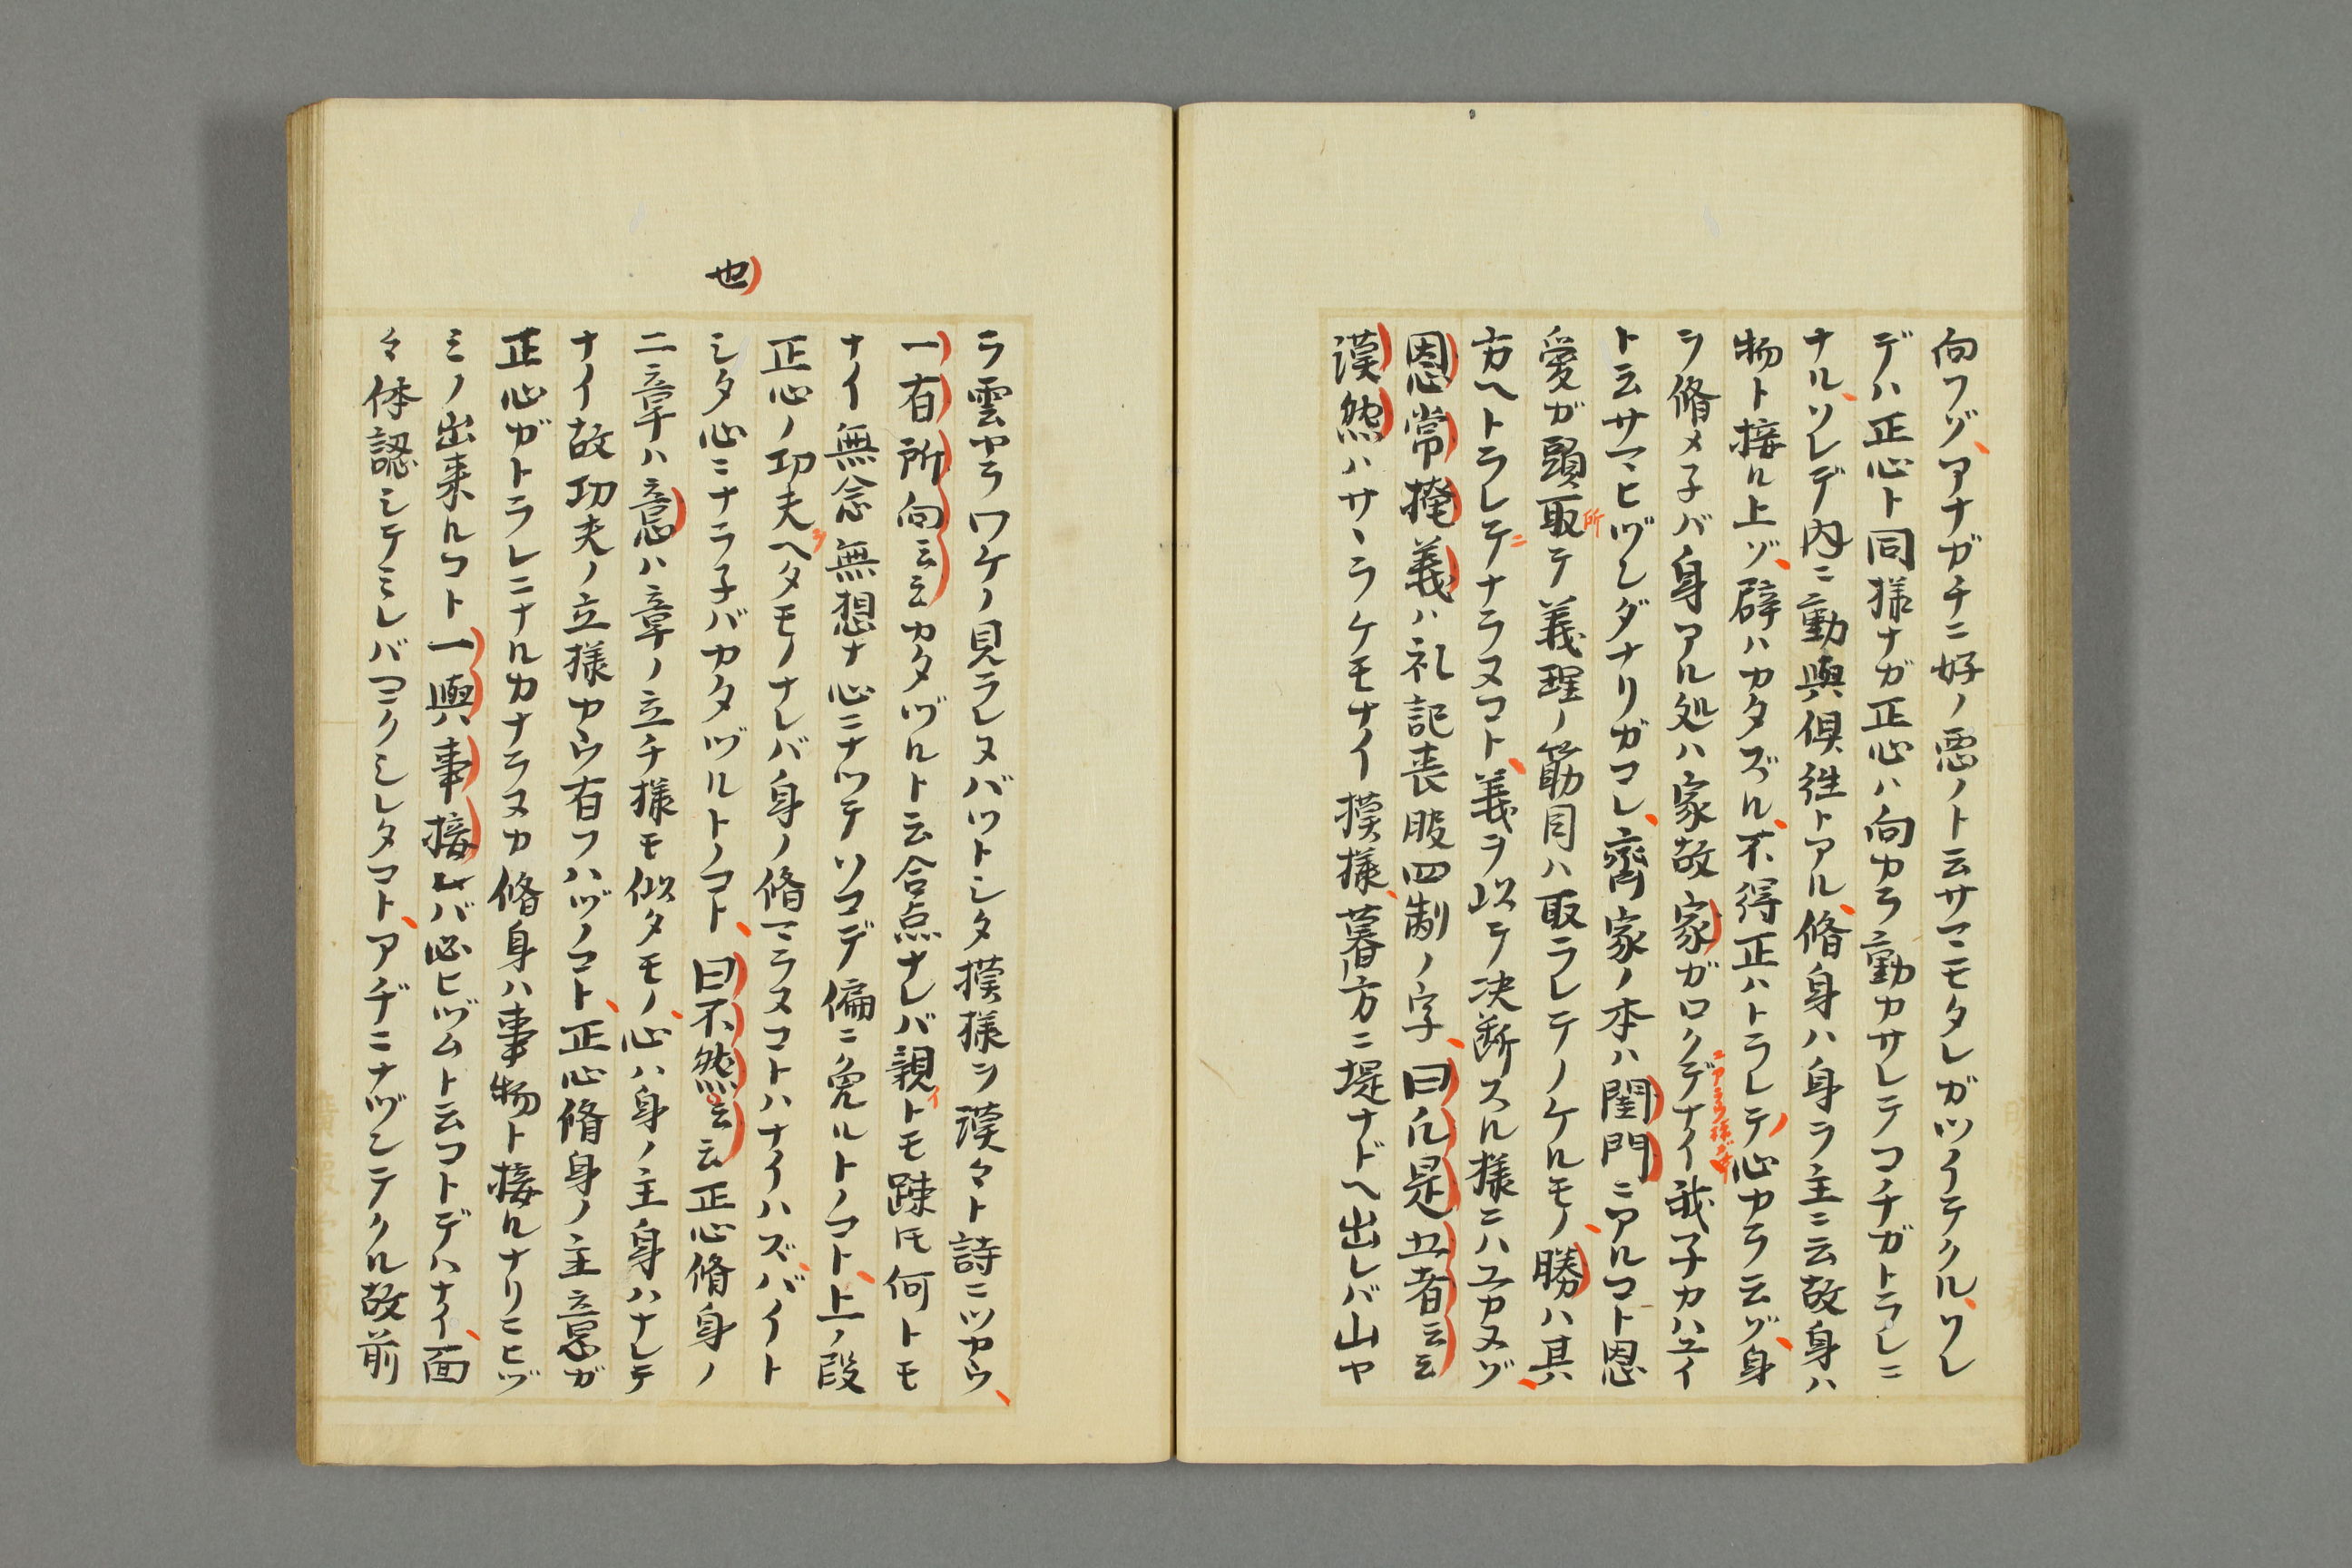 向フゾアナガチニ好ノ悪ノト云サマニモタレガツイテクルソレ
デハ正心ト同様ナガ正心ハ向カラ動カサレテコチガトラレニ
ナルソレデ内ニ動與倶徃トアル脩身ハ身ヲ主ニ云故身ハ
物ト接ル上ゾ辟ハカタズル不得正ハトラレテ心カラ云ゾ身
ヲ脩メ子バ身アル処ハ家故家ガロクデナイ我子カハユイ
ト云サマニヒヅンダナリガコレ齊家ノ本ハ閨門ニアルコト恩
愛ガ頭取テ義理ノ筋目ハ取ラレテノケルモノ勝ハ其
所
方ヘトラレテナラヌコト義ヲ以テ决断スル様ニハユカヌゾ
ニ
恩常掩義ハ礼記喪服四制ノ字曰凡是五者云云
漠然ハサヽラケモナイ摸様暮方ニ堤ナドヘ出レバ山ヤ
ラ雲ヤラワケノ見ラレヌバツトシタ摸様ヲ漠々ト詩ニツカウ
一有所向云云カタヅルト云合点ナレバ親トモ踈トモ何トモ
イ
ナイ無念無想ナ心ニナツテソコデ偏ニ免ルトノコト上ノ段
正心ノ功夫ヘタモノナレバ身ノ脩マラヌコトハナイハズバイト
シタ心ニナラ子バカタヅルトノコト曰不然云云正心脩身ノ
也
二章ハ意ハ章ノ立チ様モ似タモノ心ハ身ノ主身ハナレテ
ナイ故功夫ノ立様カウ有フハヅノコト正心脩身ノ主意ガ
正心ガトラレニナルカナラヌカ脩身ハ事物ト接ルナリニヒヅ
ミノ出来ルコト一與ハ事接レバ必ヒヅムト云コトデハナイ面
々体認シテミレバコクシレタコトアヂニナヅンテクル故前